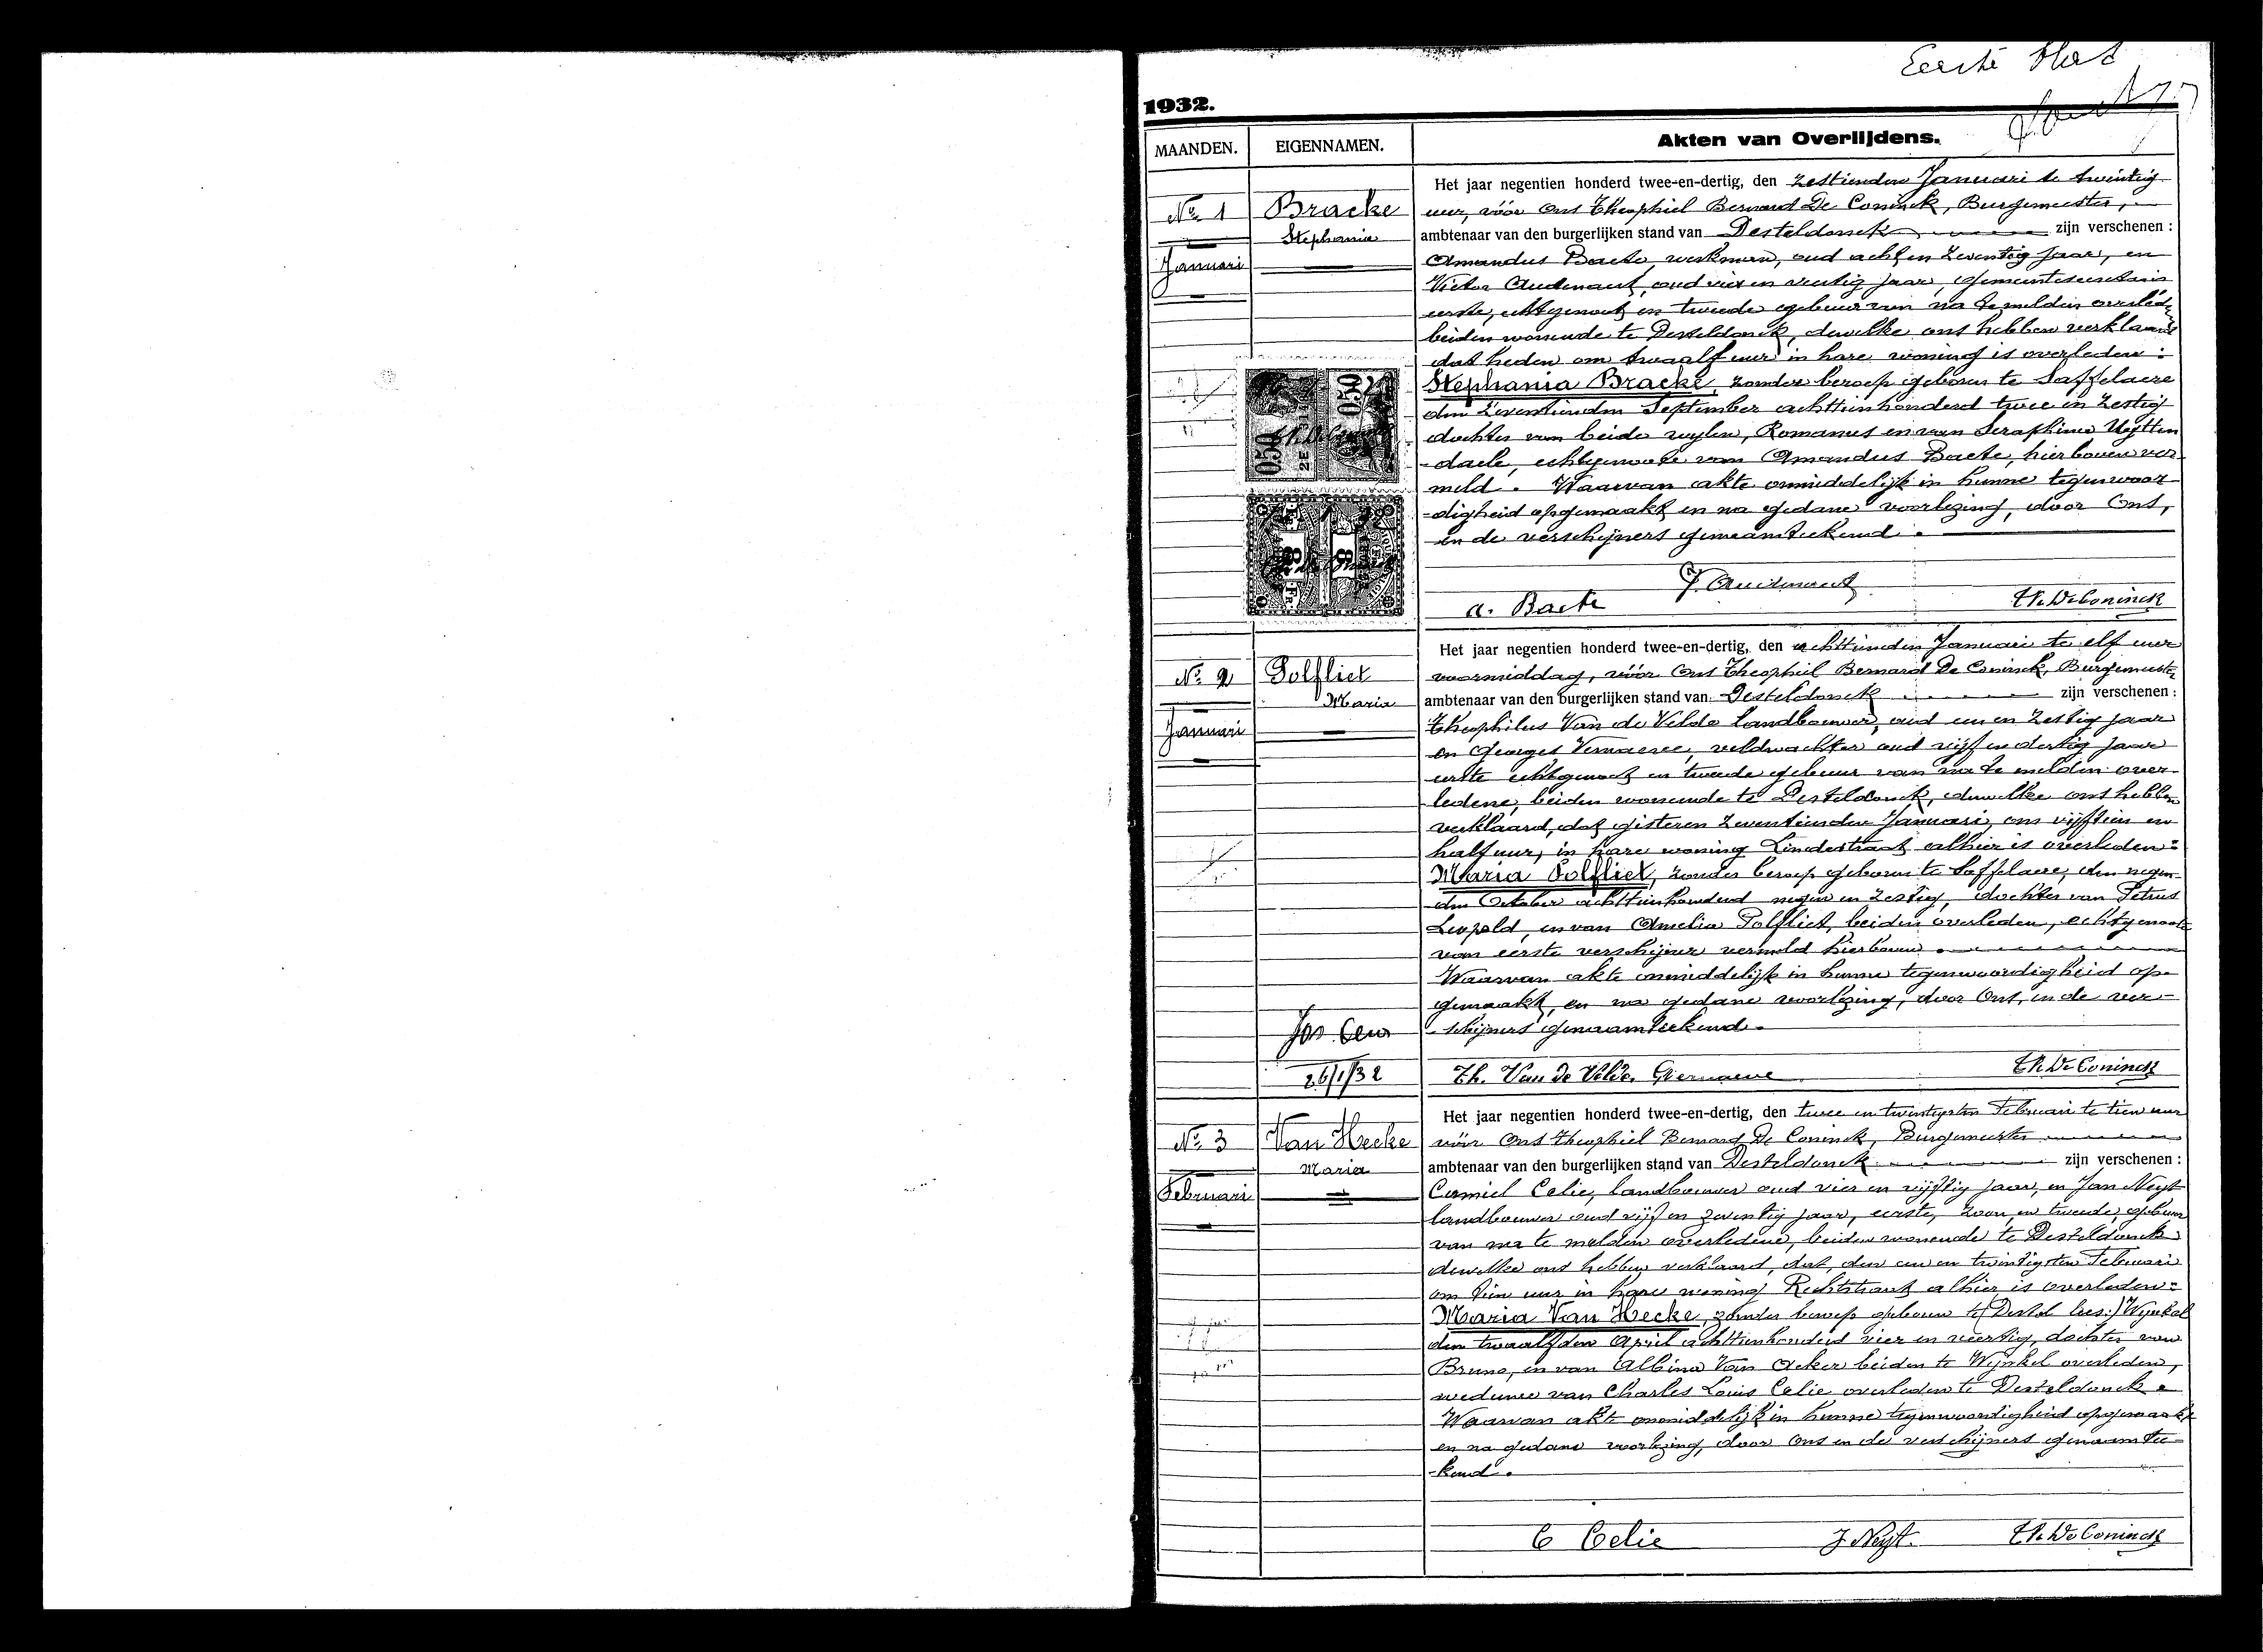 Eerste blad
1932.
MAANDEN.
EIGENNAMEN.
Akten van Overlijdens.
No. 1
Bracke
Stephania
Januari
Het jaar negentien honderd twee-en-dertig, den zestienden Januari te twintig
uur, vóór Ons Theophiel Bernard De Coninck, Burgemeester,
ambtenaar van den burgerlijken stand van Desteldonck zijn verschenen :
Amandus Baete, werkman, oud acht en zeventig jaar, en
Victor Audenaert, oud vier en veertig jaar, gemeentesecretaris
eerste, echtgenoot en tweede gebuur van na te melden overled-
beiden wonende te Desteldonck, dewelke ons hebben verklaard
dat heden om twaalf uur in hare woning is overleden :
Stephania Bracke, zonder beroep geboren te Saffelaere
den zeventienden September achttienhonderd twee en zestig
dochter van beide wylen, Romanus en van Seraphina Uytten
-daele, echtgenoote van Amandus Baete, hierboven ver-
meld. Waarvan akte onmiddelijk in hunne tegenwoor-
-digheid opgemaakt en na gedane voorlezing, door Ons,
en de verschijners genaamteekend.
0.50
0.50
8
8
Fr.
A. Baete
V. Audenaert
Th. De Coninck
No. 2
Polfliet
Maria
Januari
Het jaar negentien honderd twee-en-dertig, den achttienden Januari te elf uur
voormiddag, vóór Ons Theophiel Bernard De Coninck, Burgemeester
ambtenaar van den burgerlijken stand van Desteldonck zijn verschenen :
Theophilus Van de Velde landbouwer, oud een en zestig jaar
en Georges Vernaeve, veldwachter oud vijf en dertig jaar
eerste echtgenoot en tweede gebuur van na te melden over-
ledene, beiden wonende te Desteldonck, dewelke ons hebben
verklaard, dat gisteren zeventienden Januari, om vijftien en
half uur, in hare woning Lindestraat alhier is overleden :
Maria Polfliet, zonder beroep geboren te Saffelaere, den negen-
den October achttienhonderd negen en zestig, dochter van Petrus
Leopold, en van Amelia Polfliet, beiden overleden, echtgenoote
van eerste verschijner vermeld hierboven.
Waarvan akte onmiddelijk in hunne tegenwoordigheid op-
gemaakt, en na gedane voorlezing, door Ons, en de ver-
-schijners genaamteekend.
26/1/32
Th. Van de Velde. G Vernaeve
Th. De Coninck
No. 3
Van Hecke
Maria
Februari
Het jaar negentien honderd twee-en-dertig, den twee en twintigsten Februari te tien uur
vóór Ons Theophiel Bernard De Coninck, Burgemeester
ambtenaar van den burgerlijken stand van Desteldonck zijn verschenen :
Camiel Celie, landbouwer oud vier en vijftig jaar, en Jan Neyt
landbouwer oud vijf en zeventig jaar, eerste, zoon, en tweede, gebuur
van na te melden overledene, beiden wonende te Desteldonck
dewelke ons hebben verklaard, dat, den een en twintigsten Februari
om tien uur in hare woning Rechtstraat alhier is overleden :
Maria Van Hecke, zonder beroep geboren te (Destel lees:) Wynkel
den twaalfden April achttienhonderd vier en veertig, dochter van
Bruno, en van Albina Van Acker beiden te Wijnkel overleden,
weduwe van Charles Louis Celie overleden te Desteldonck.
Waarvan akte onmiddelijk in hunne tegenwoordigheid opgemaakt
en na gedane voorlezing, door Ons en de verschijners genaamtee-
-kend.
C Celie
J. Neyt.
Th. De Coninck